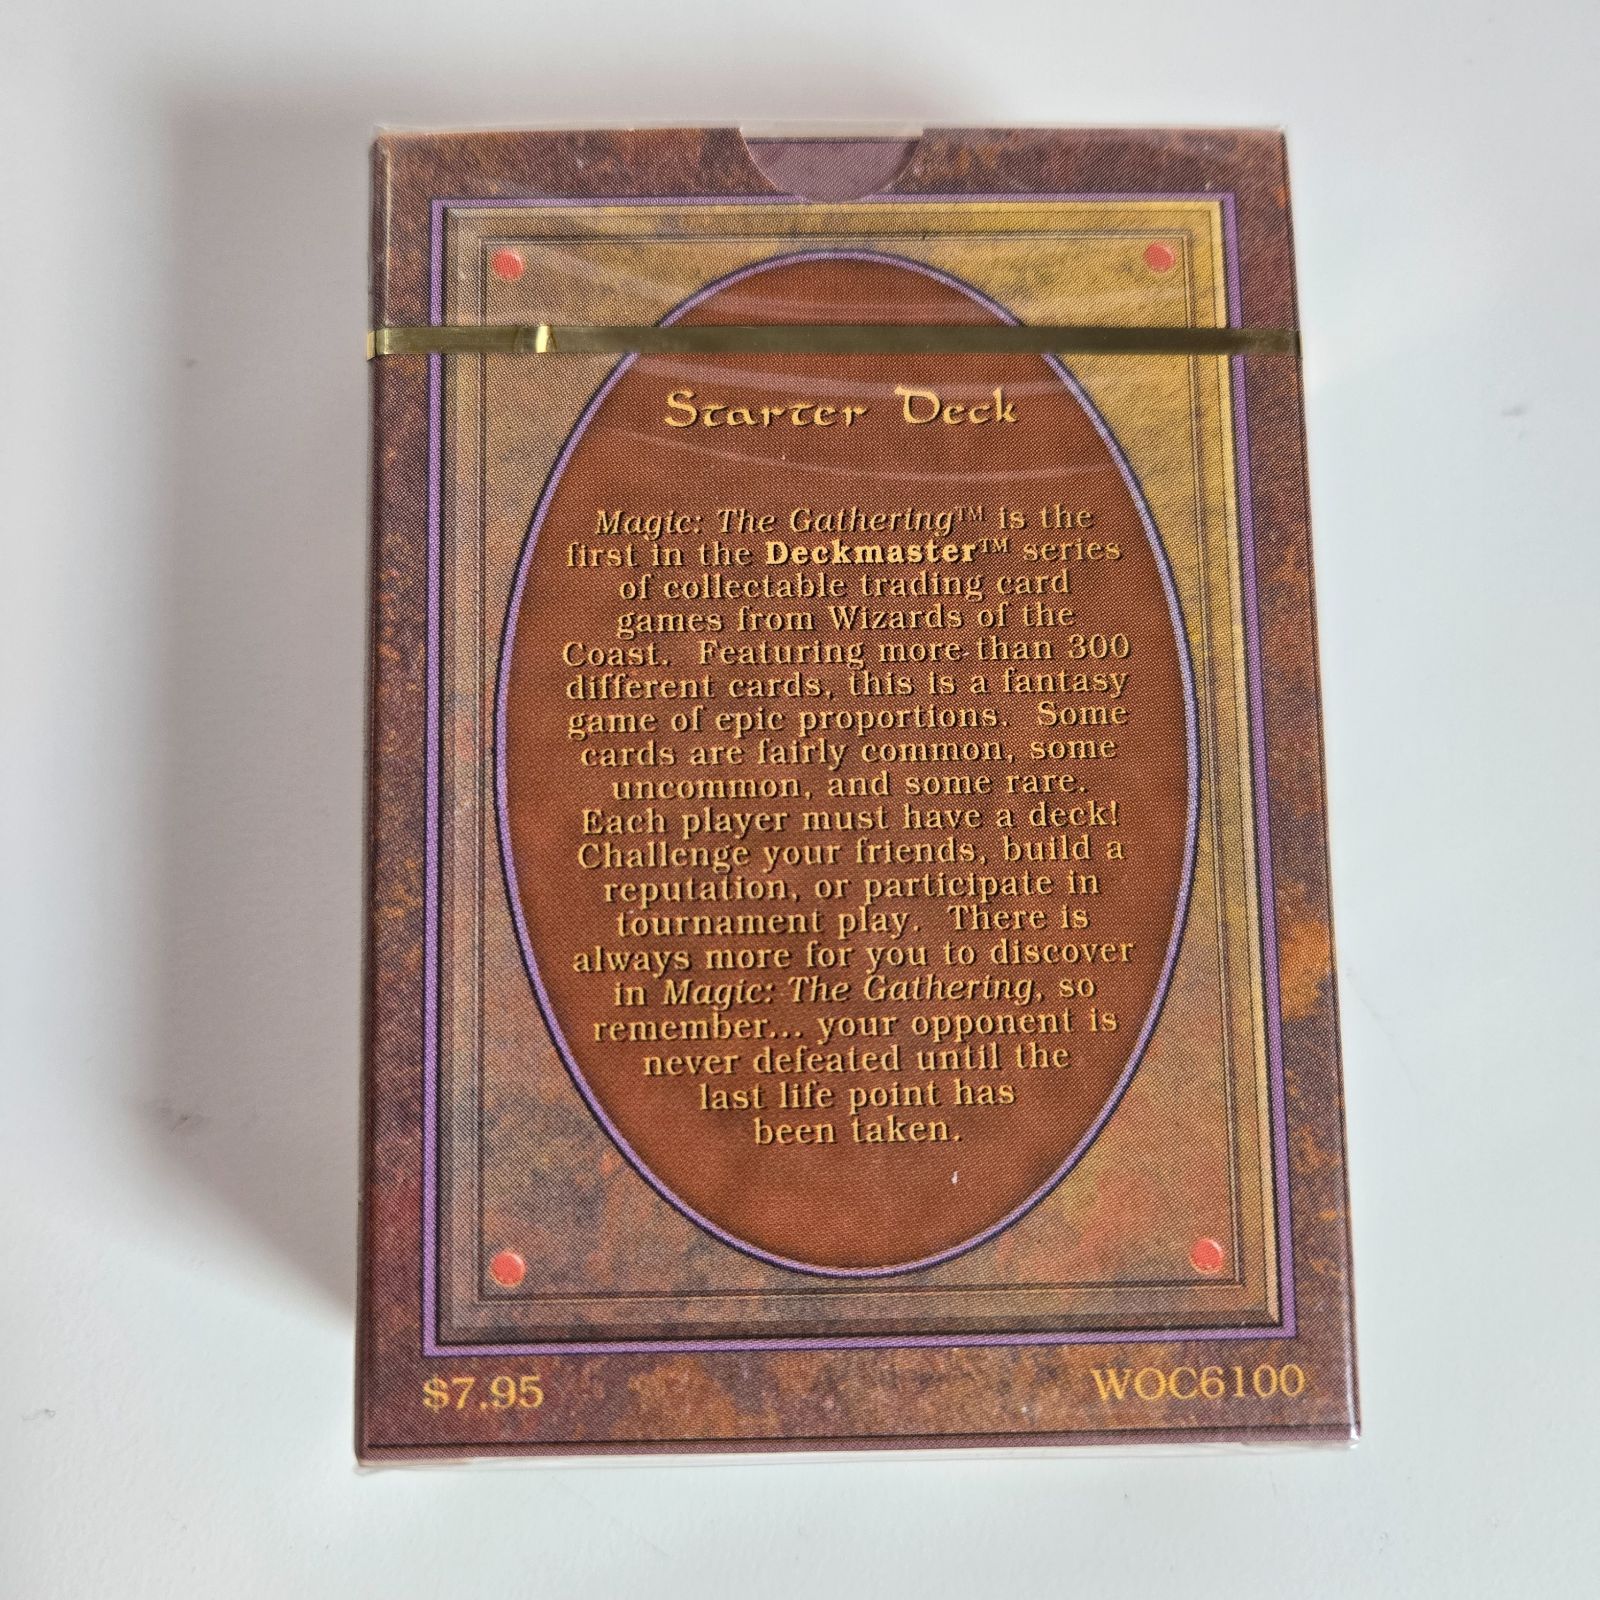 Starter Deck
Magic: The Gathering™ is the
first in the Deckmaster™ series
of collectable trading card
games from Wizards of the
Coast. Featuring more than 300
different cards, this is a fantasy
game of epic proportions. Some
cards are fairly common, some
uncommon, and some rare.
Each player must have a deck!
Challenge your friends, build a
reputation, or participate in
tournament play. There is
always more for you to discover
in Magic: The Gathering, so
remember... your opponent is
never defeated until the
last life point has
been taken.
$7.95 WOC6100